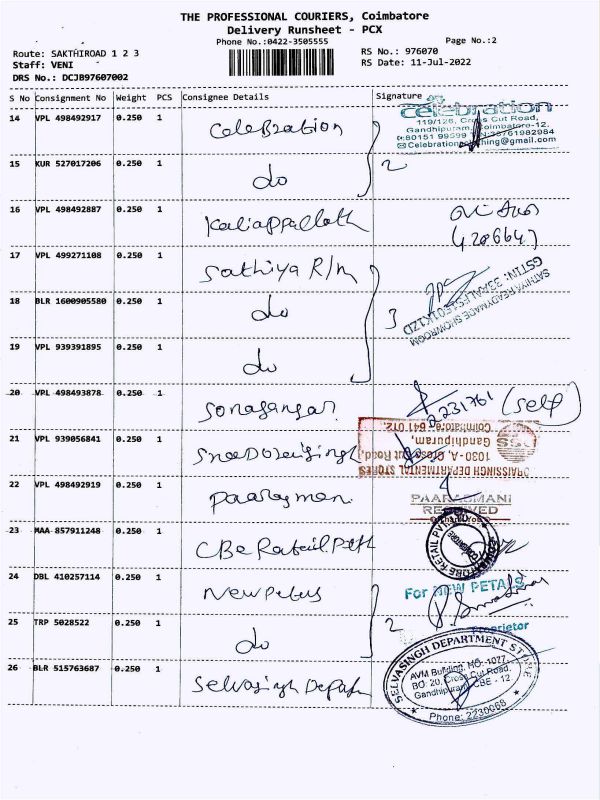 THE PROFESSIONAL COURIERS, Coimbatore
Delivery Runsheet - PCX
Phone No.:0422-3505555
Page No.:2
Route: SAKTHIROAD 1 2 3
RS No.: 976070
Staff: VENI
RS Date: 11-Jul-2022
DRS No.: DCJB97607002
S No Consignment No Weight PCS Consignee Details Signature
14 VPL 498492917 0.250 1 Celebration
celebration
119/126, Cross Cut Road,
Gandhipuram, Coimbatore-12.
15 KUR 527017206 0.250 1 do 2
16 VPL 498492887 0.250 1
17 VPL 499271108 0.250 1 Sathiya R/m
SATHIYA READYMADE SHOWROOM
18 BLR 1600905580 0.250 1 do 3
19 VPL 939391895 0.250 1 do
20 VPL 498493878 0.250 1 2231761 (self)
21 VPL 939056841 0.250 1
DEPARTMENTAL STORES
1030-A, Cross Cut Road,
Gandhipuram,
Coimbatore-641 012.
22 VPL 498492919 0.250 1
PAARASMANI
RECEIVED
23 MAA 857911248 0.250 1 CBE Retail
24 DBL 410257114 0.250 1 New Petals
For NEW PETALS
25 TRP 5028522 0.250 1 do 2
Proprietor
26 BLR 515763687 0.250 1 Selvasingh
SELVASINGH DEPARTMENT STORE
AVM Building, NO.-1027
BO: 20, Cross Cut Road,
Gandhipuram, CBE - 12
Phone: 2230068